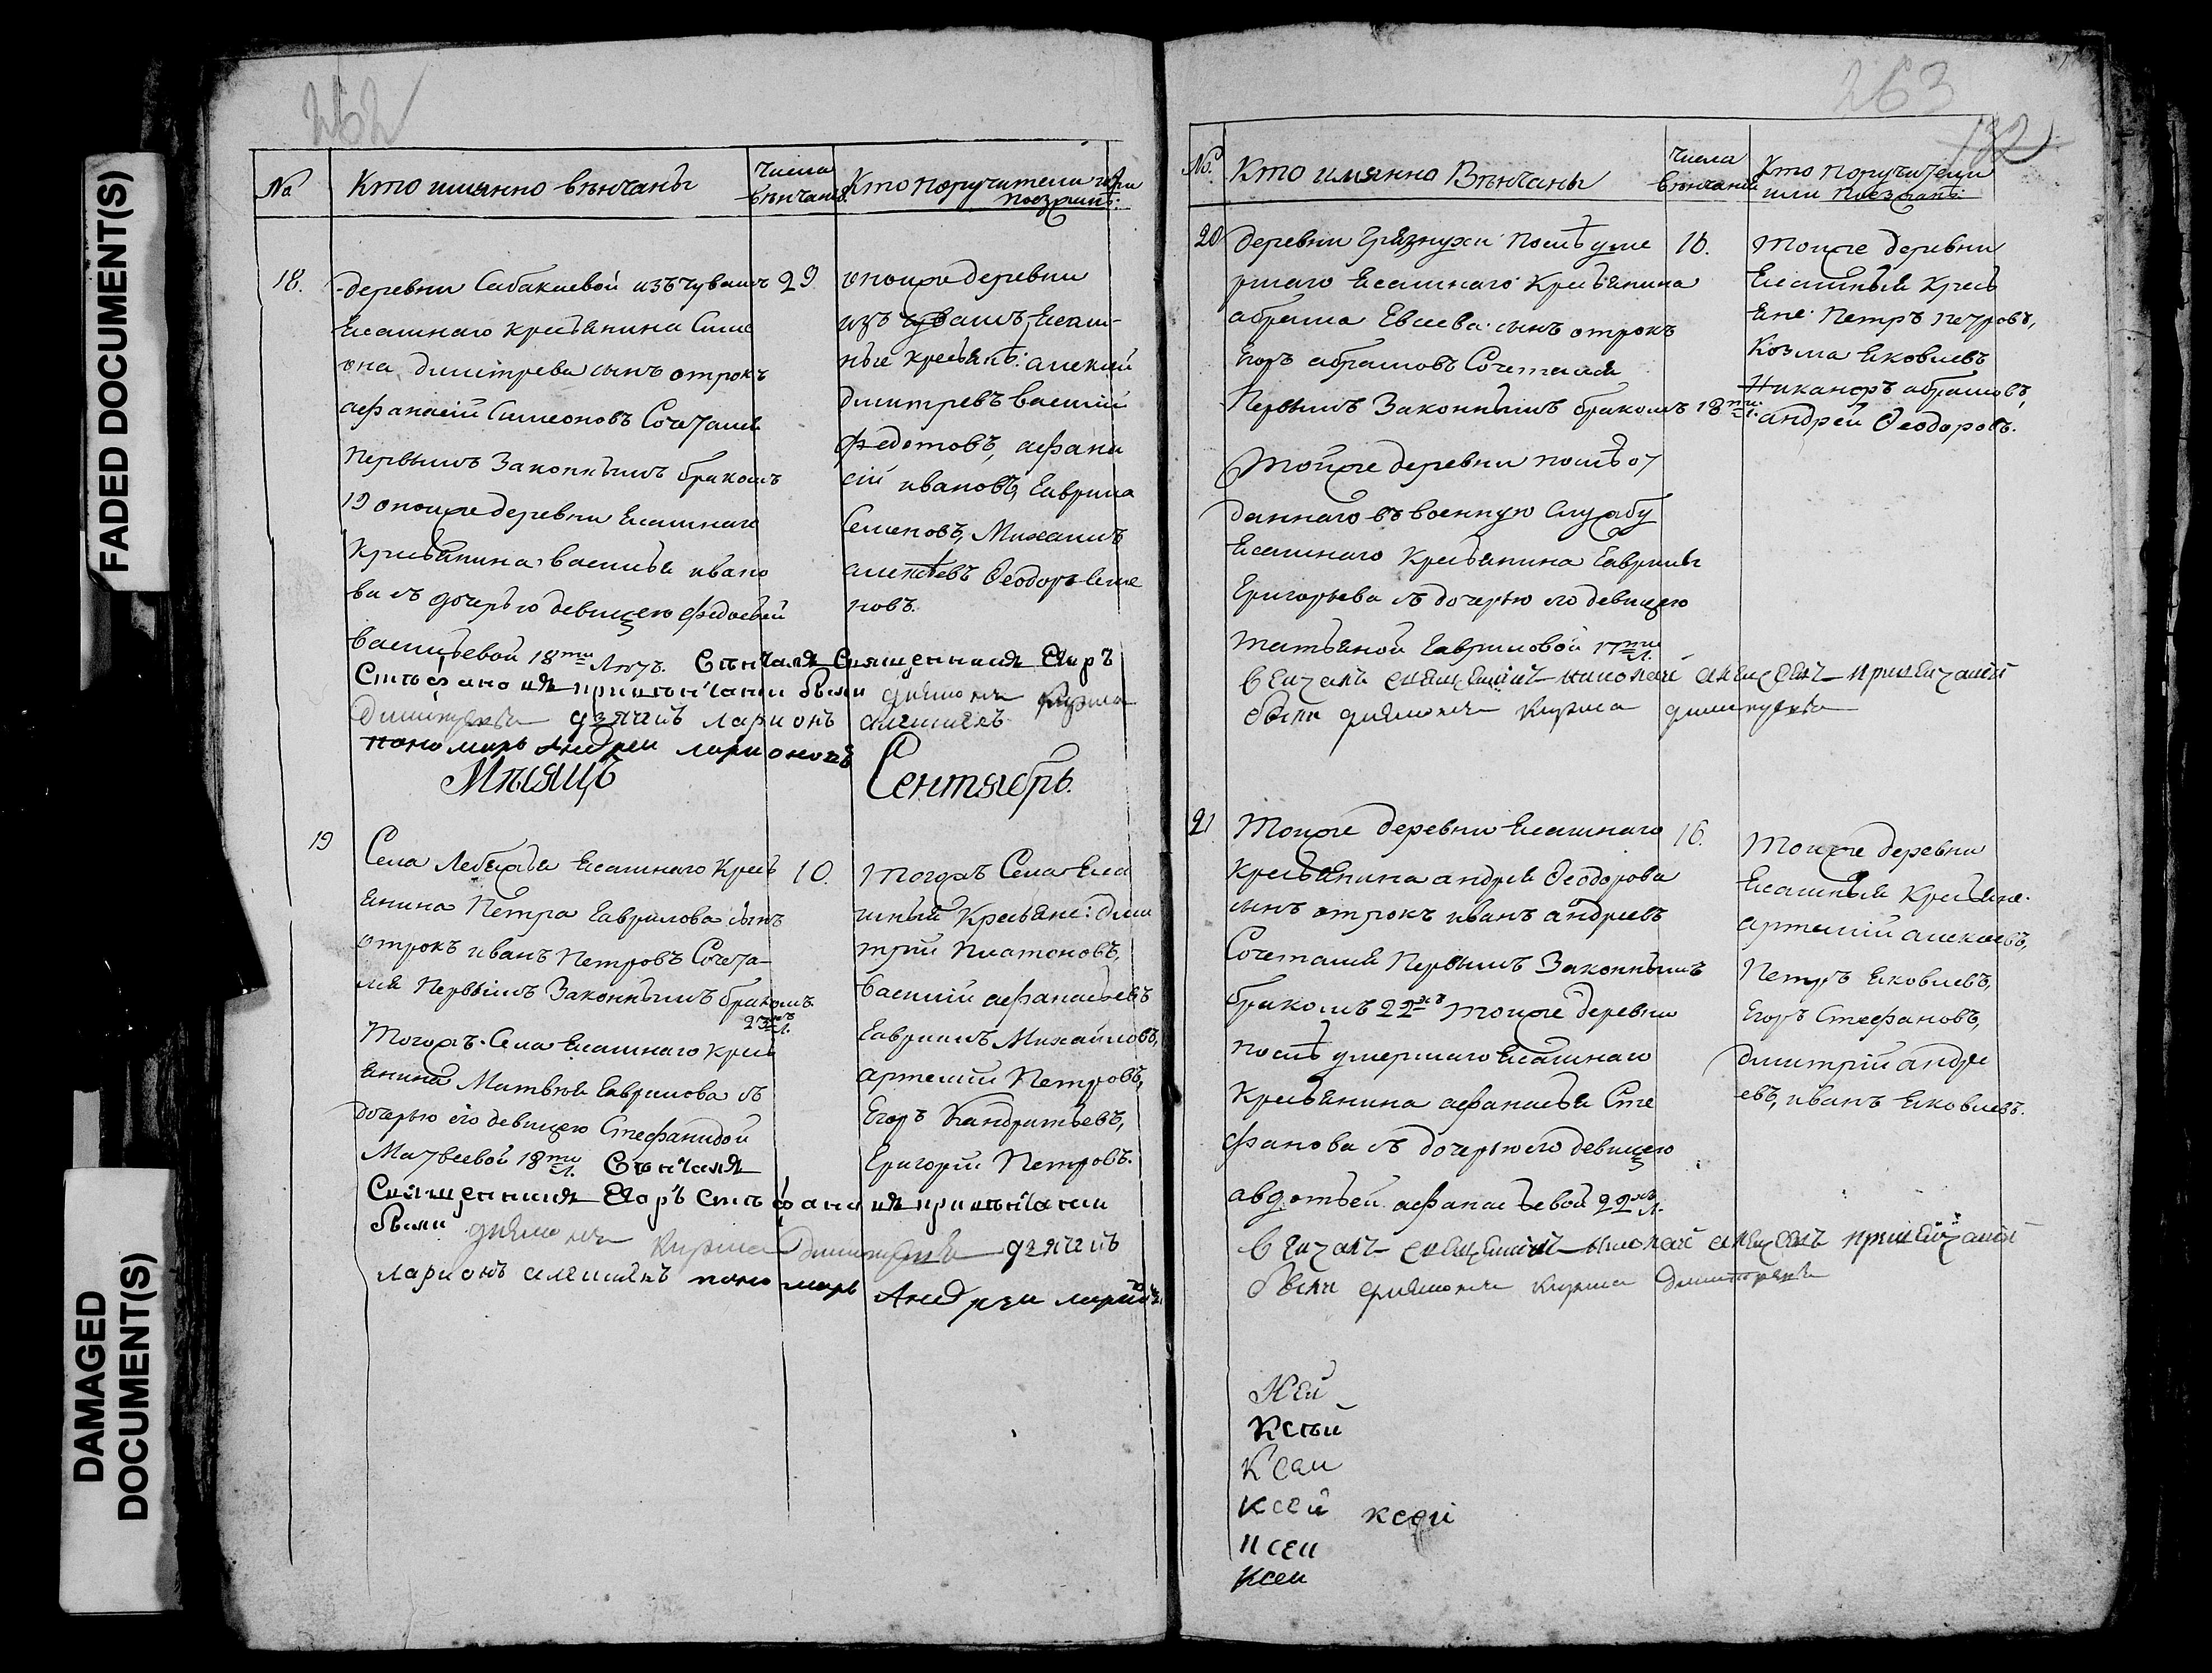 FADED DOCUMENT(S)
DAMAGED
DOCUMENT(S)
262
№
Кто имянно вѣнчаны
Числа
вѣнчанiя
Кто поручители или
поезжанѣ:
18.
деревни Сабакаевой изъ чувашъ
29
Ясашнаго крестьянина Симе
она димитрева сынъ отрокъ
афанасiй Симеоновъ Сочетался
первымъ Законнымъ бракомъ
19 оной же деревни Ясашнаго
Крестьянина василья ивано
ва съ дочерью девицею
васильевой 18ти Лѣтъ. Вѣнчалъ Священникъ Егоръ
Стефановъ при вѣнчанiи были дияконъ Кузма
Димитревъ дьячикъ ларионъ
пономарь Андреи ларионовъ
оной же деревни
изъ чувашъ Ясаш-
ные крестьянѣ: алексей
димитревъ василiй
федотовъ, афана
сiй ивановъ, Гаврила
Семеновъ, Михаилъ
алексѣевъ Феодоръ Семе
новъ.
Мѣсяцъ
Сентябрь.
19
Села Лебяжья Ясашнаго Кресть
10.
янина Петра Гаврилова сынъ
отрокъ иванъ Петровъ Сочета-
лся Первымъ Законнымъ бракомъ
23хъ л.
Тогожъ Села Ясашнаго Кресть
янина Матвея Гаврилова съ
дочерью его девицею Стефанидой
Матвеевой 18ти л. Вѣнчалъ
Священникъ Егоръ Стефановъ при вѣнчанiи
были дияконъ Кузма Димитревъ дьячикъ
ларионъ пономарь Андреи
Тогожъ Села Яса
шныя Крестьяне: Дими
трiй Платоновъ,
василiй афанасьевъ
Гаврилъ Михайловъ,
артемiй Петровъ,
Егоръ Кандратьевъ,
Григорiй Петровъ.
263
132
№
Кто имянно Вѣнчаны
Числа
вѣнчанiя
Кто поручители
или поезжанѣ:
20
деревни Грязнухи послѣ уме
16.
ршаго Ясашнаго Крестьянина
абрама Евсева сынъ отрокъ
Егоръ абрамовъ Сочетался
Первымъ Законнымъ бракомъ 18ти л.
Тойже деревни послѣ от
даннаго въ военную Службу
Ясашнаго Крестьянина Гаврилы
Григорьева съ дочерью его девицею
татьяной Гавриловой 17ти л.
венчалъ священникъ николай привенчанiй
были дияконъ Кузма димитревъ
Тойже деревни
Ясашныя Кресть
яне Петръ Петровъ,
Козма Яковлевъ
Никаноръ абрамовъ,
андрей Феодоровъ.
21
Тойже деревни Ясашнаго
16.
Крестьянина андрея Феодорова
сынъ отрокъ иванъ андреевъ
Сочетался Первымъ Законнымъ
бракомъ 22хъ тойже деревни
послѣ умершаго Ясашнаго
Крестьянина афанасья Сте
фанова съ дочерью его девицею
авдотьей афанасьевой 22хъ л.
венчалъ священникъ николай привенчанiй
были дияконъ Кузма Димитревъ
Тойже деревни
Ясашныя Крестьяне.
артемiй алексевъ,
Петръ Яковлевъ,
Егоръ Стефановъ,
димитрiй андре
евъ, иванъ Яковлевъ.
ксей ксей
ксеи